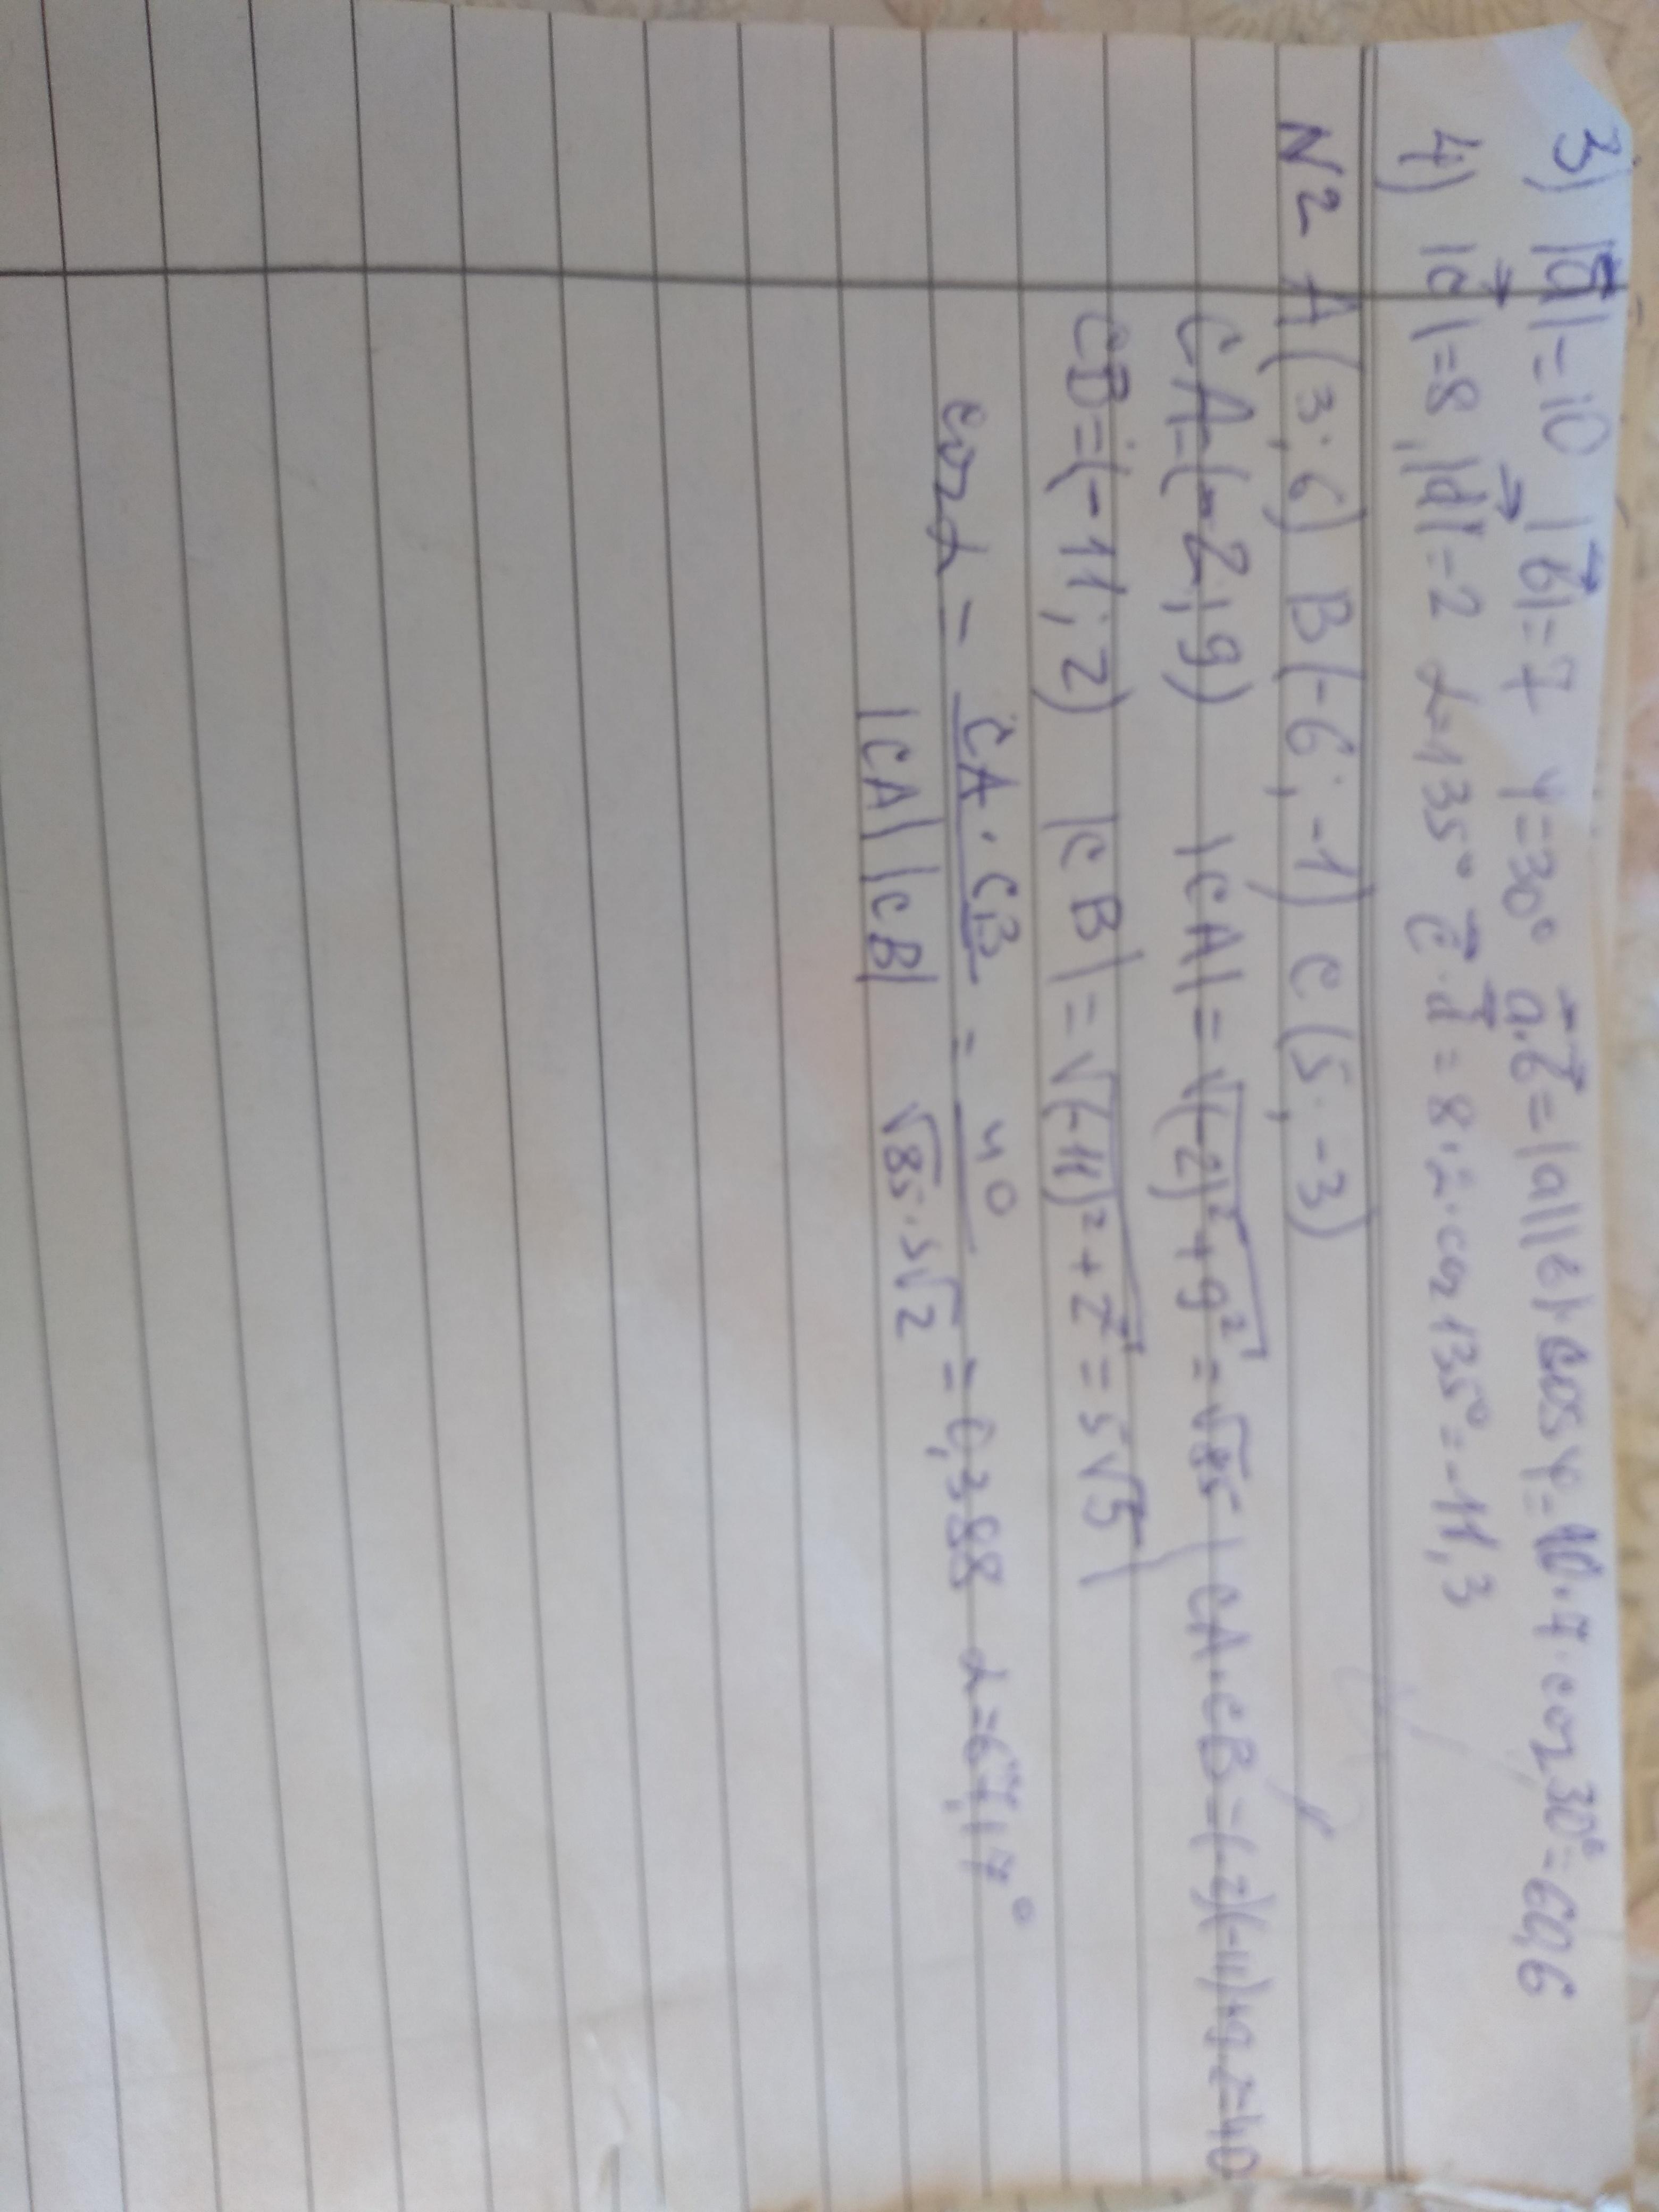 3) |a⃗|=10 |b⃗|=7 φ=30° a⃗·b⃗=|a||b|·cosφ=10·7·cos30°=60,6
4) |c⃗|=8, |d⃗|=2 α=135° c⃗·d⃗=8·2·cos135°=-11,3
N2 A(3;6) B(-6;-1) C(5;-3)
CA=(-2;9) |CA|=√(-2)²+9²=√85 | CA·CB=(-2)(-11)+9·2=40
CB=(-11;2) |CB|=√(-11)²+2²=5√5 |
cosα = CA·CB / |CA||CB| = 40 / √85·5√2 = 0,388 α=67,17°